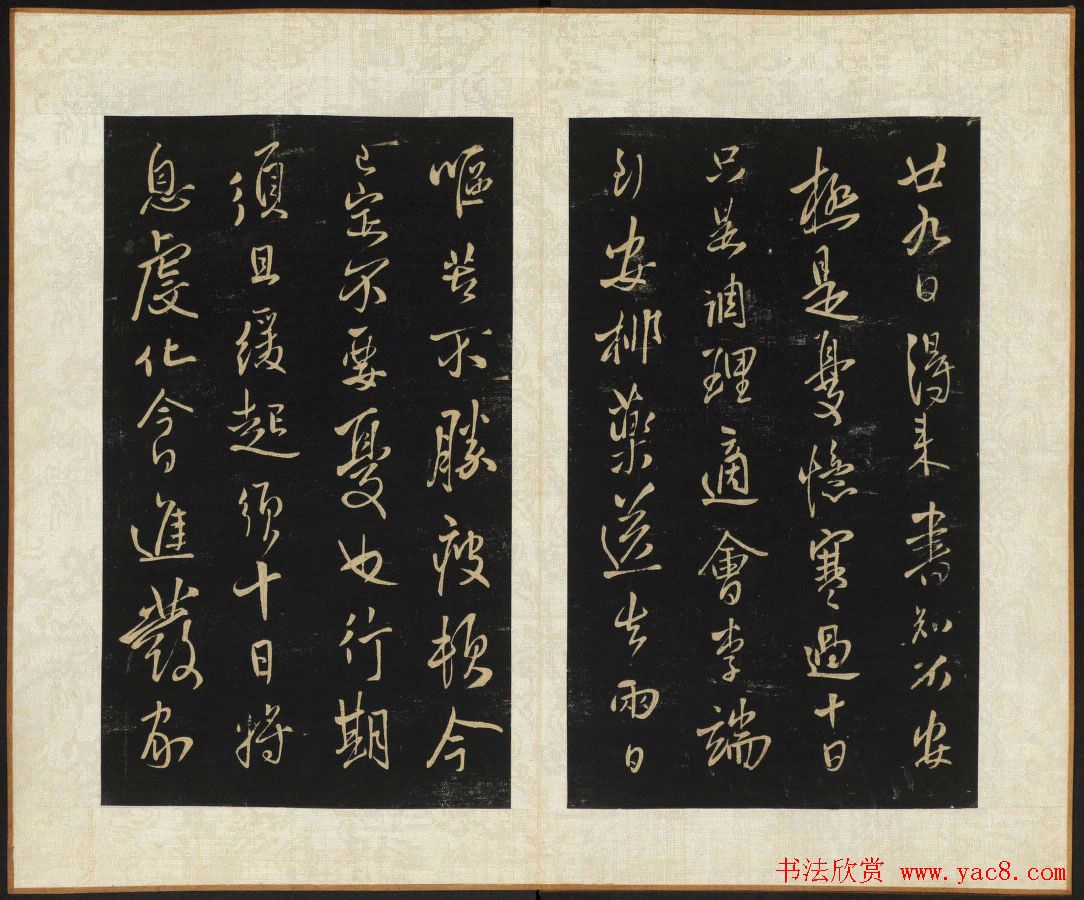 廿九日得來書知不安
極是憂憶寒過十日
只是調理適會李端
到安排藥送去兩日
嘔苦不勝疲頓今
已定不要憂也行期
須且緩起須十日將
息虔化今日進發家
书法欣赏 www.yac8.com